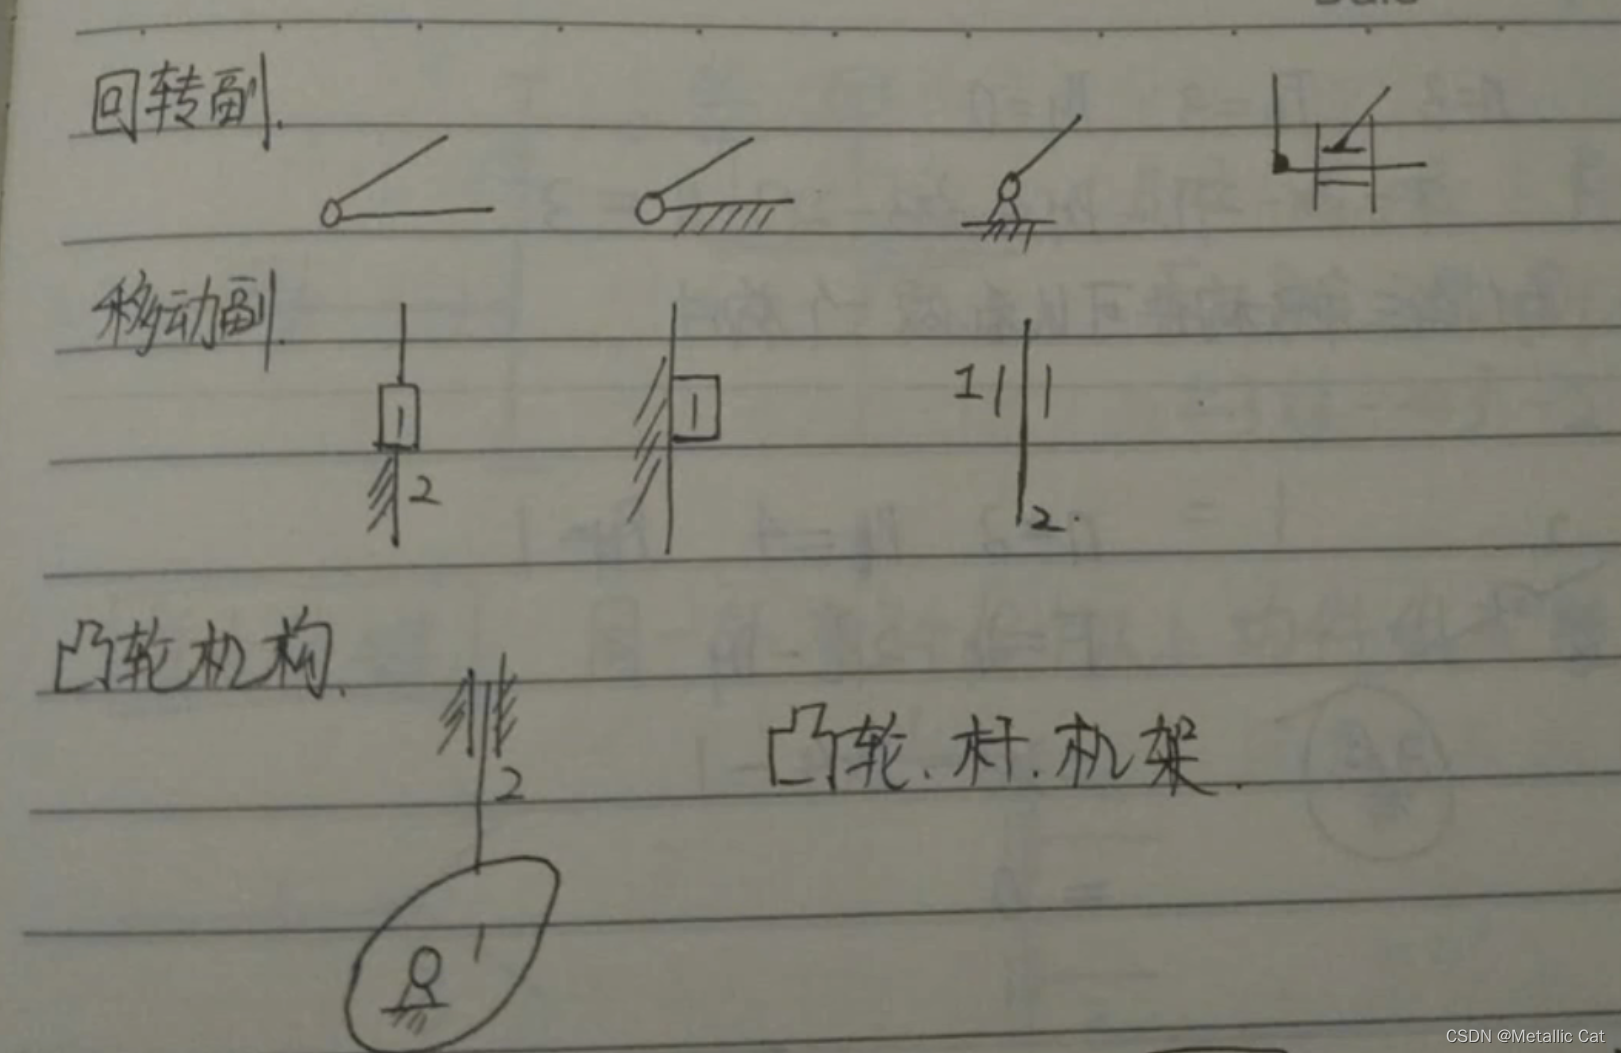 回转副.
移动副.
1
2
1
1
2.
凸轮机构.
2
凸轮、杆、机架.
1
CSDN @Metallic Cat